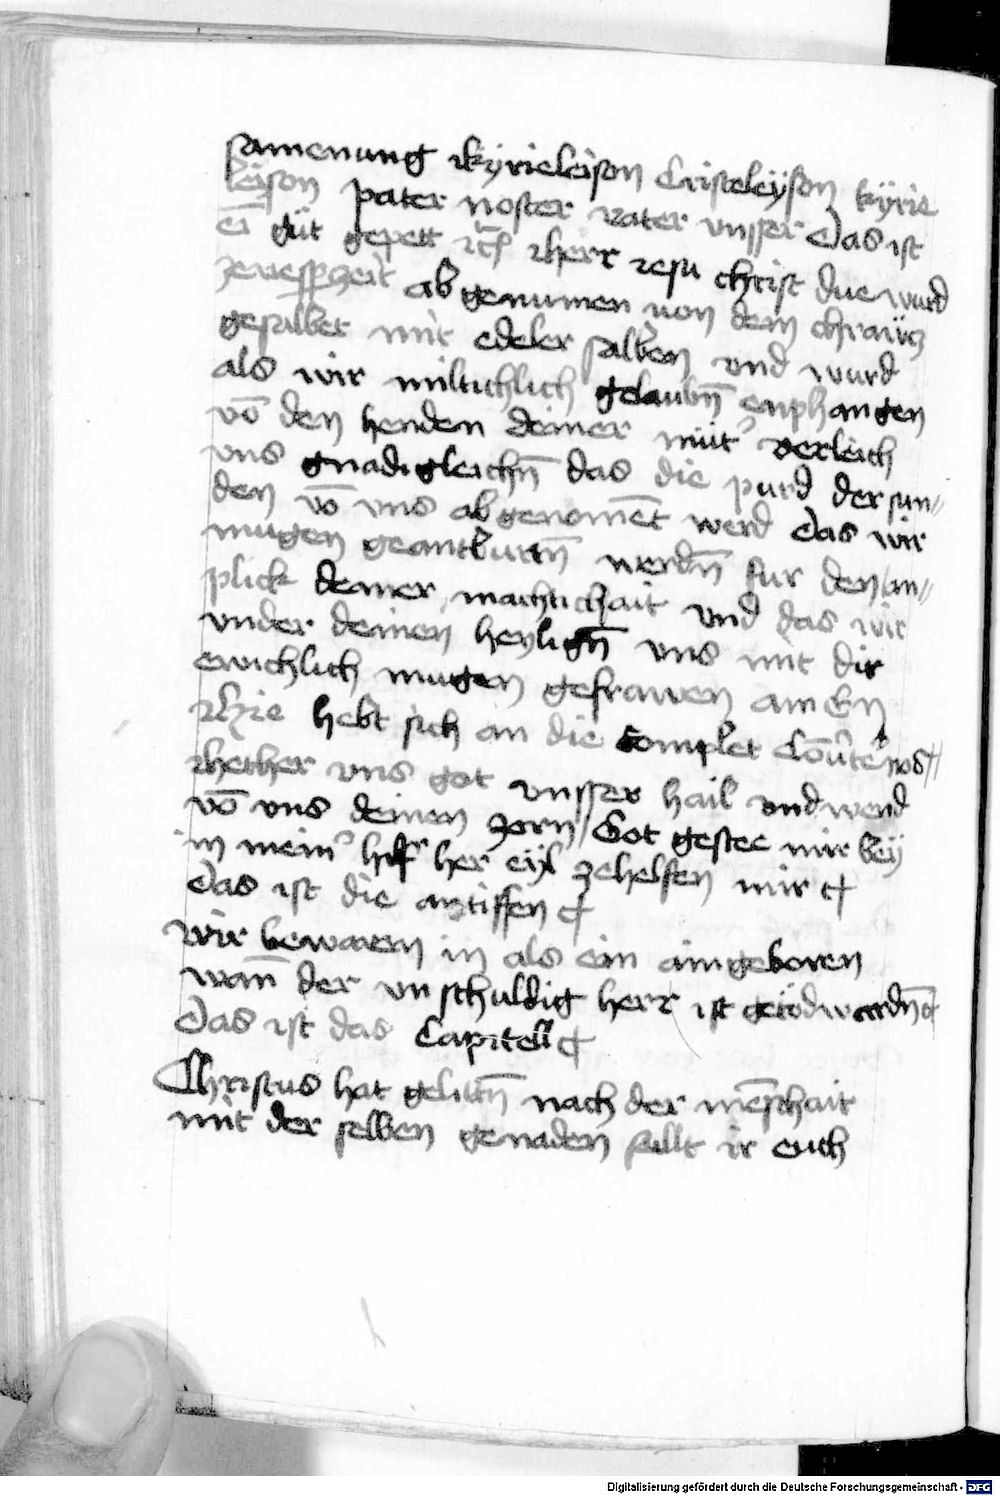 samenung kyrieleison Cristeleÿson kÿrie
leison pater noster vater vnsser Das ist
ei̅ gūt gepett herr iesu christ due wurd
zeuesperzeit ab genumen von dem chraütz
gesalbet mit edeler salben vnd wurd
als wir miltichlich gelaubn̅ enphangen
vo̅ den henden deiner mūt' verleich
vns gnadigleichn̅ das die purd der sun//
den vo̅ vns ab genome̅t werd das wir
mugen geantburtn̅ werdn̅ fur den an//
plick deiner machtichait vnd das wir
vnder deinen heylign̅ vns mit dir
ewichlich mugen gefrawen amEn
Hie hebt sich an die complet Co̅u̅te nos//
hether vns got vnsser hail vnd wend
vo̅ vns deinen zorn / Got gestee mir beÿ
in mein' hilf her eÿl zehelfen mir ₵
Das ist die antiffen ₵
Wir bewaren in als ein aingeboren
wan̅ der vnschuldig herr ist getöd wordn̅ ₵
Das ist das Capitell ₵
Christus hat gelittn̅ nach der me̅schait
mit der selben genaden sullt ir euch
Digitalisierung gefördert durch die Deutsche Forschungsgemeinschaft - DFG